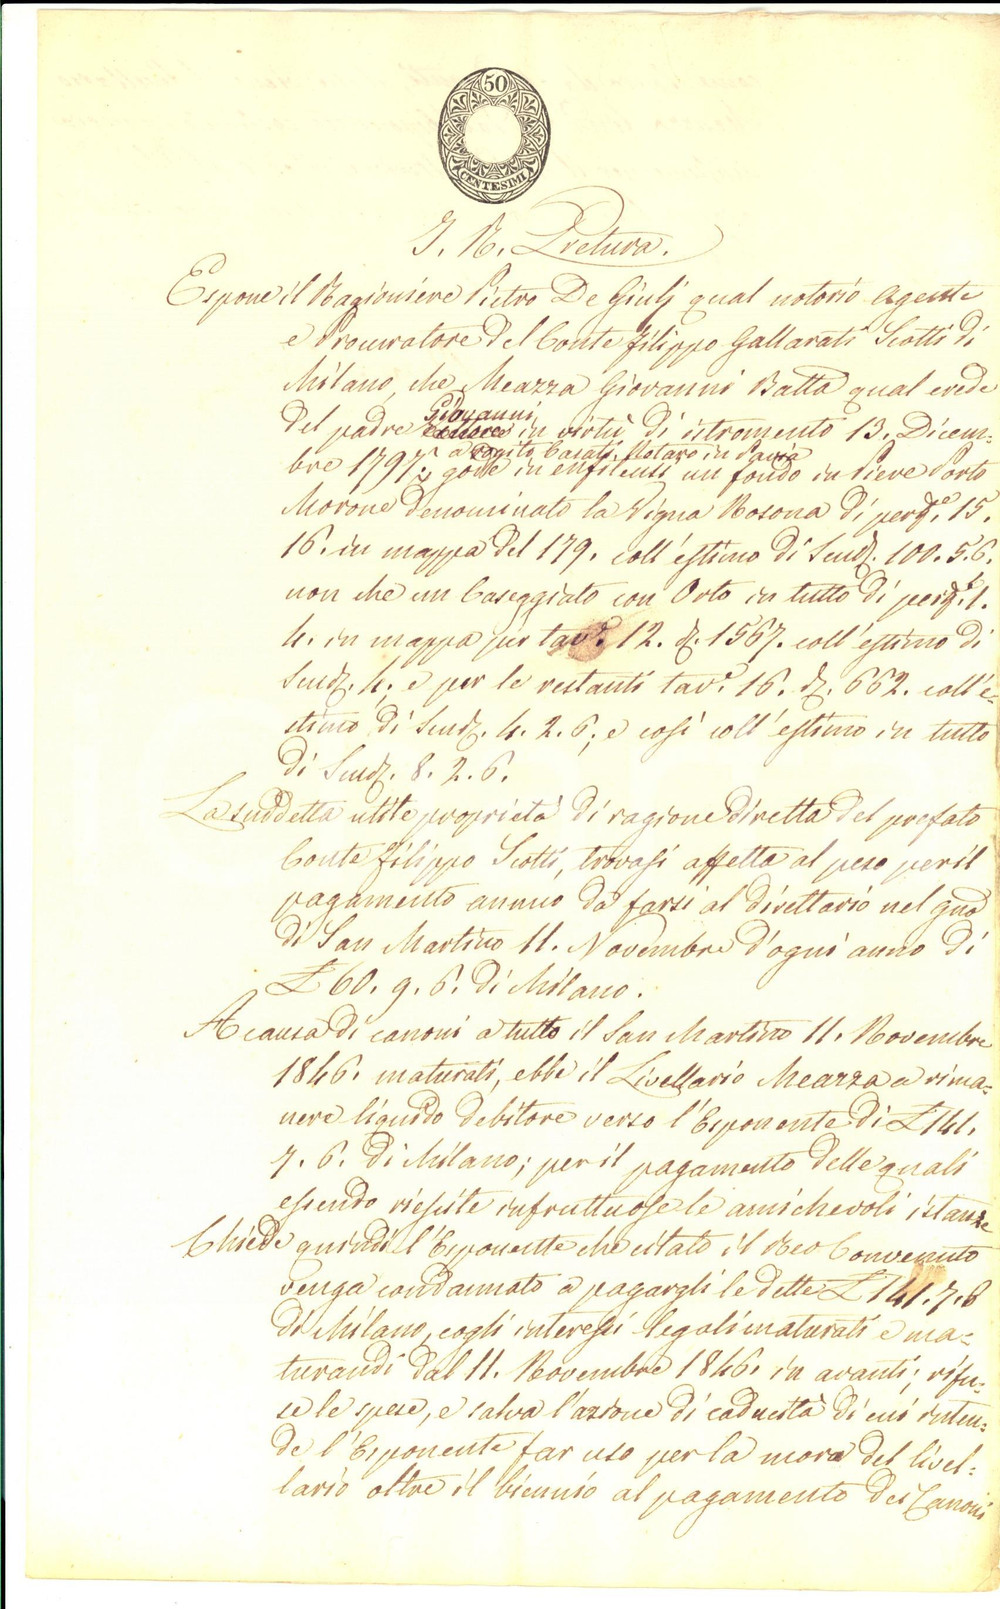 50
CENTESIMI
I. R. Pretura.
Espone il Ragioniere Pietro De Giulj qual notorio Agente
e Procuratore del Conte Filippo Gallarati Scotti di
Milano, che Meazza Giovanni Batta qual erede
del padre Giovanni in virtù di istromento 13. Dicem-
a rogito Casati Notaro in Pavia
bre 1797. gode in enfiteusi un fondo in Pieve Porto
Morone denominato la Vigna Rosona di pert.e 15.
16. in mappa del 179. coll'estimo di Scudi. 100. 5. 6.
non che un Caseggiato con Orto in tutto di pert. 1.
4. in mappa per tav.e 12. 1567. coll'estimo di
Scudi. 4. e per le restanti tav.e 16. 662. coll'e-
stimo di Scudi. 4. 2. 6; e così coll'estimo in tutto
di Scudi. 8. 2. 6.
La suddetta utile proprietà di ragione diretta del prefato
Conte Filippo Scotti, trovasi affetta al peso per il
pagamento annuo da farsi al direttario nel gno
di San Martino 11. Novembre d'ogni anno di
£ 60. 9. 6. di Milano.
A causa di canoni a tutto il San Martino 11. Novembre
1846. maturati, ebbe il Livellario Meazza a rima-
nere liquido debitore verso l'Esponente di £ 141.
7. 6. di Milano; per il pagamento delle quali
essendo riescite infruttuose le amichevoli istanze
Chiede quindi l'Esponente che citato il Reo Convenuto
venga condannato a pagargli le dette £ 141. 7. 6
di Milano, cogli interessi legali maturati e ma-
turandi dal 11. Novembre 1846. in avanti; rifu-
se le spese, e salva l'azione di caducità di cui inten-
de l'Esponente far uso per la mora del livel-
lario oltre il biennio al pagamento dei Canoni